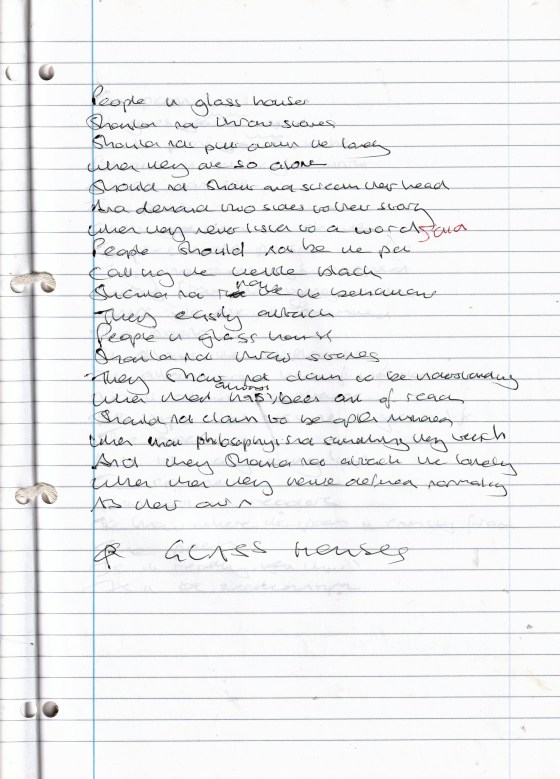 People in glass houses
Should not throw stones
Should not put down the lonely
When they are so alone
Should not shout and scream their head
And demand two sides to their story
When they never listen to a word said
People should not be the pot
Calling the kettle black
Should not have the behaviour
They easily attack
People in glass houses
Should not throw stones
They should not claim to be understanding
When that has always been out of reach
Should not claim to be open minded
When that philosophy is not something they teach
And they should not attack the lonely
When they have defined normality
As their own
GLASS HOUSES